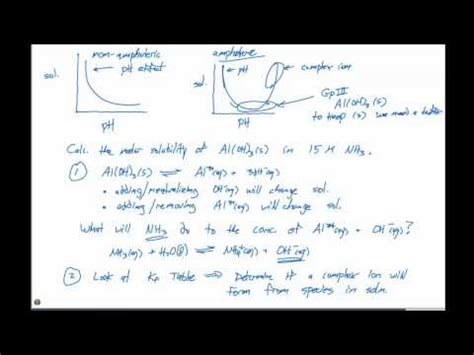 non-amphoteric
amphoteric
pH effect
pH
complex ion
sol.
sol.
Gp III
Al(OH)₃(s)
to trap (s) we need a buffer
pH
pH
Calc. the molar solubility of Al(OH)₃(s) in 15 M NH₃.
① Al(OH)₃(s) ⇌ Al³⁺(aq) + 3OH⁻(aq)
• adding/neutralizing OH⁻(aq) will change sol.
• adding/removing Al³⁺(aq) will change sol.
What will NH₃ do to the conc. of Al³⁺(aq) + OH⁻(aq)?
NH₃(aq) + H₂O(l) ⇌ NH₄⁺(aq) + OH⁻(aq)
② Look at Kf Table ⇒ Determine if a complex Ion will
form from species in soln.